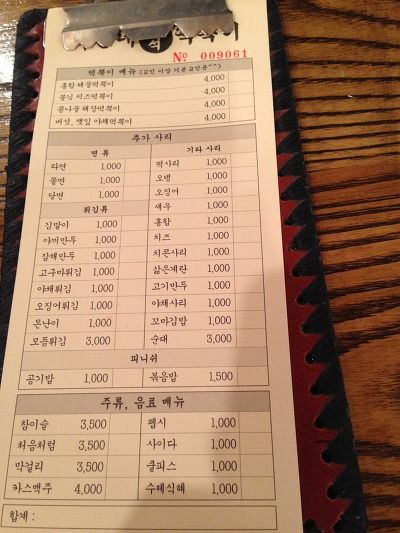 석
№ 009061
떡볶이 메뉴 (2인 이상 기본 2인분^^)
홍합 해물떡볶이 4,000
쫄깃 치즈떡볶이 4,000
콩나물 해장떡볶이 4,000
버섯, 깻잎 야채떡볶이 4,000
추가 사리
면 류 기타 사리
라면 1,000 떡사리 1,000
쫄면 1,000 오뎅 1,000
당면 1,000 오징어 1,000
튀김류 새우 1,000
김말이 1,000 홍합 1,000
야끼만두 1,000 치즈 1,000
잡채만두 1,000 치콘사리 1,000
고구마튀김 1,000 삶은계란 1,000
야채튀김 1,000 고기만두 1,000
오징어튀김 1,000 야채사리 1,000
못난이 1,000 꼬마김밥 1,000
모듬튀김 3,000 순대 3,000
피니쉬
공기밥 1,000 볶음밥 1,500
주류, 음료 메뉴
참이슬 3,500 펩시 1,000
처음처럼 3,500 사이다 1,000
막걸리 3,500 쿨피스 1,000
카스맥주 4,000 수제식혜 1,000
합계 :